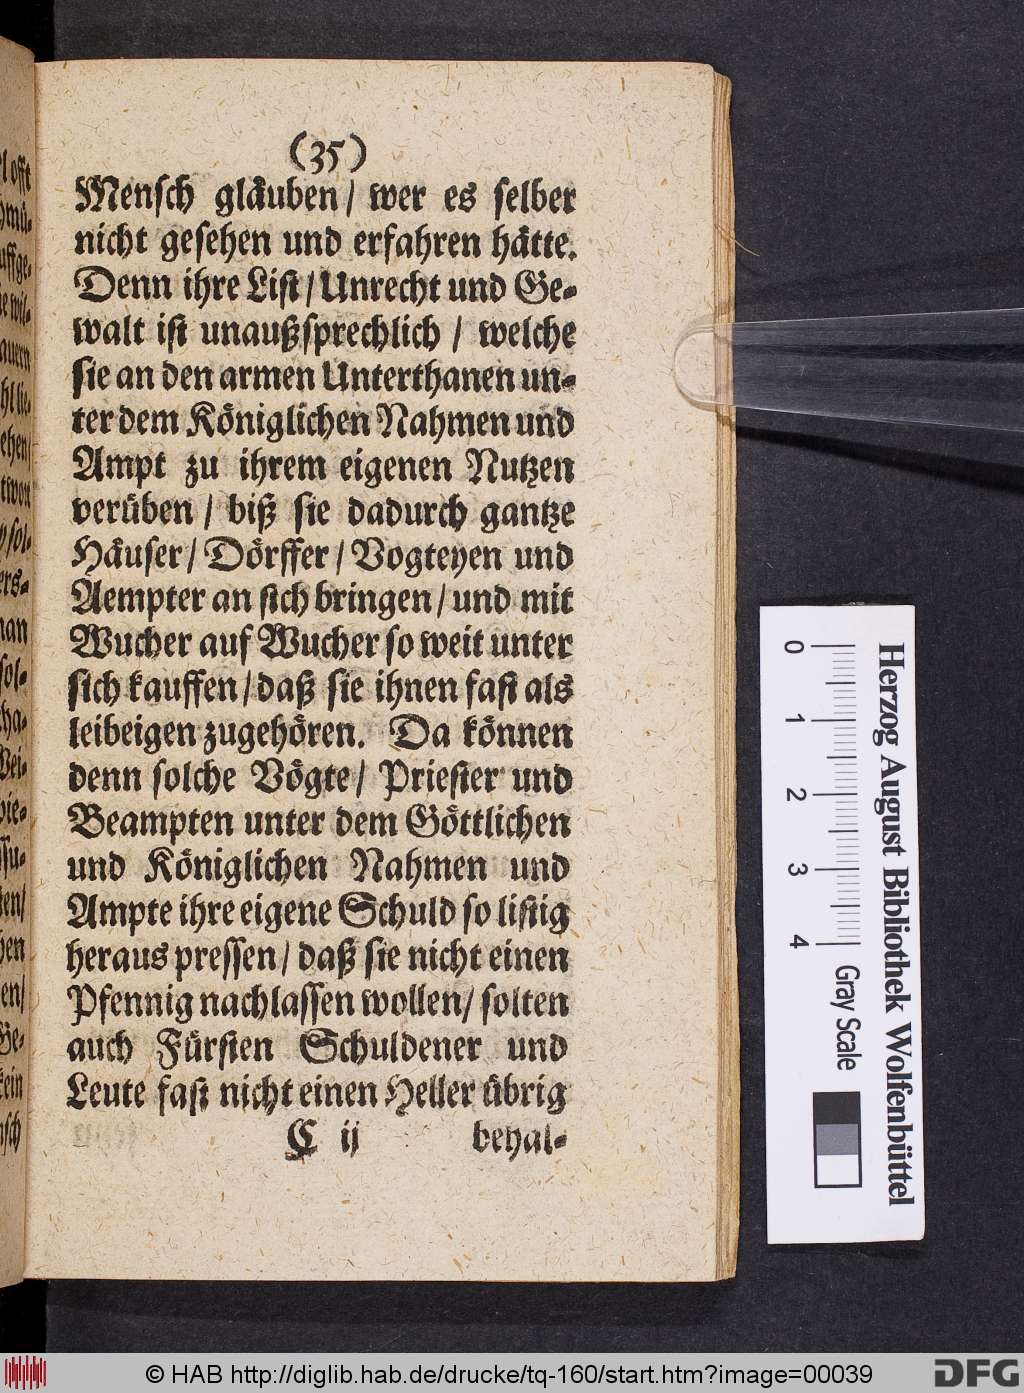 (35)
Mensch gläuben / wer es selber
nicht gesehen und erfahren hätte.
Denn ihre List / Unrecht und Ge-
walt ist unaußsprechlich / welche
sie an den armen Unterthanen un-
ter dem Königlichen Nahmen und
Ampt zu ihrem eigenen Nutzen
verüben / biß sie dadurch gantze
Häuser / Dörffer / Vogteyen und
Aempter an sich bringen / und mit
Wucher auf Wucher so weit unter
sich kauffen / daß sie ihnen fast als
leibeigen zugehören. Da können
denn solche Vögte / Priester und
Beampten unter dem Göttlichen
und Königlichen Nahmen und
Ampte ihre eigene Schuld so listig
heraus pressen / daß sie nicht einen
Pfennig nachlassen wollen / solten
auch Fürsten Schuldener und
Leute fast nicht einen Heller übrig
C ij behal-
Herzog August Bibliothek Wolfenbüttel
0 1 2 3 4 Gray Scale
© HAB http://diglib.hab.de/drucke/tq-160/start.htm?image=00039
DFG